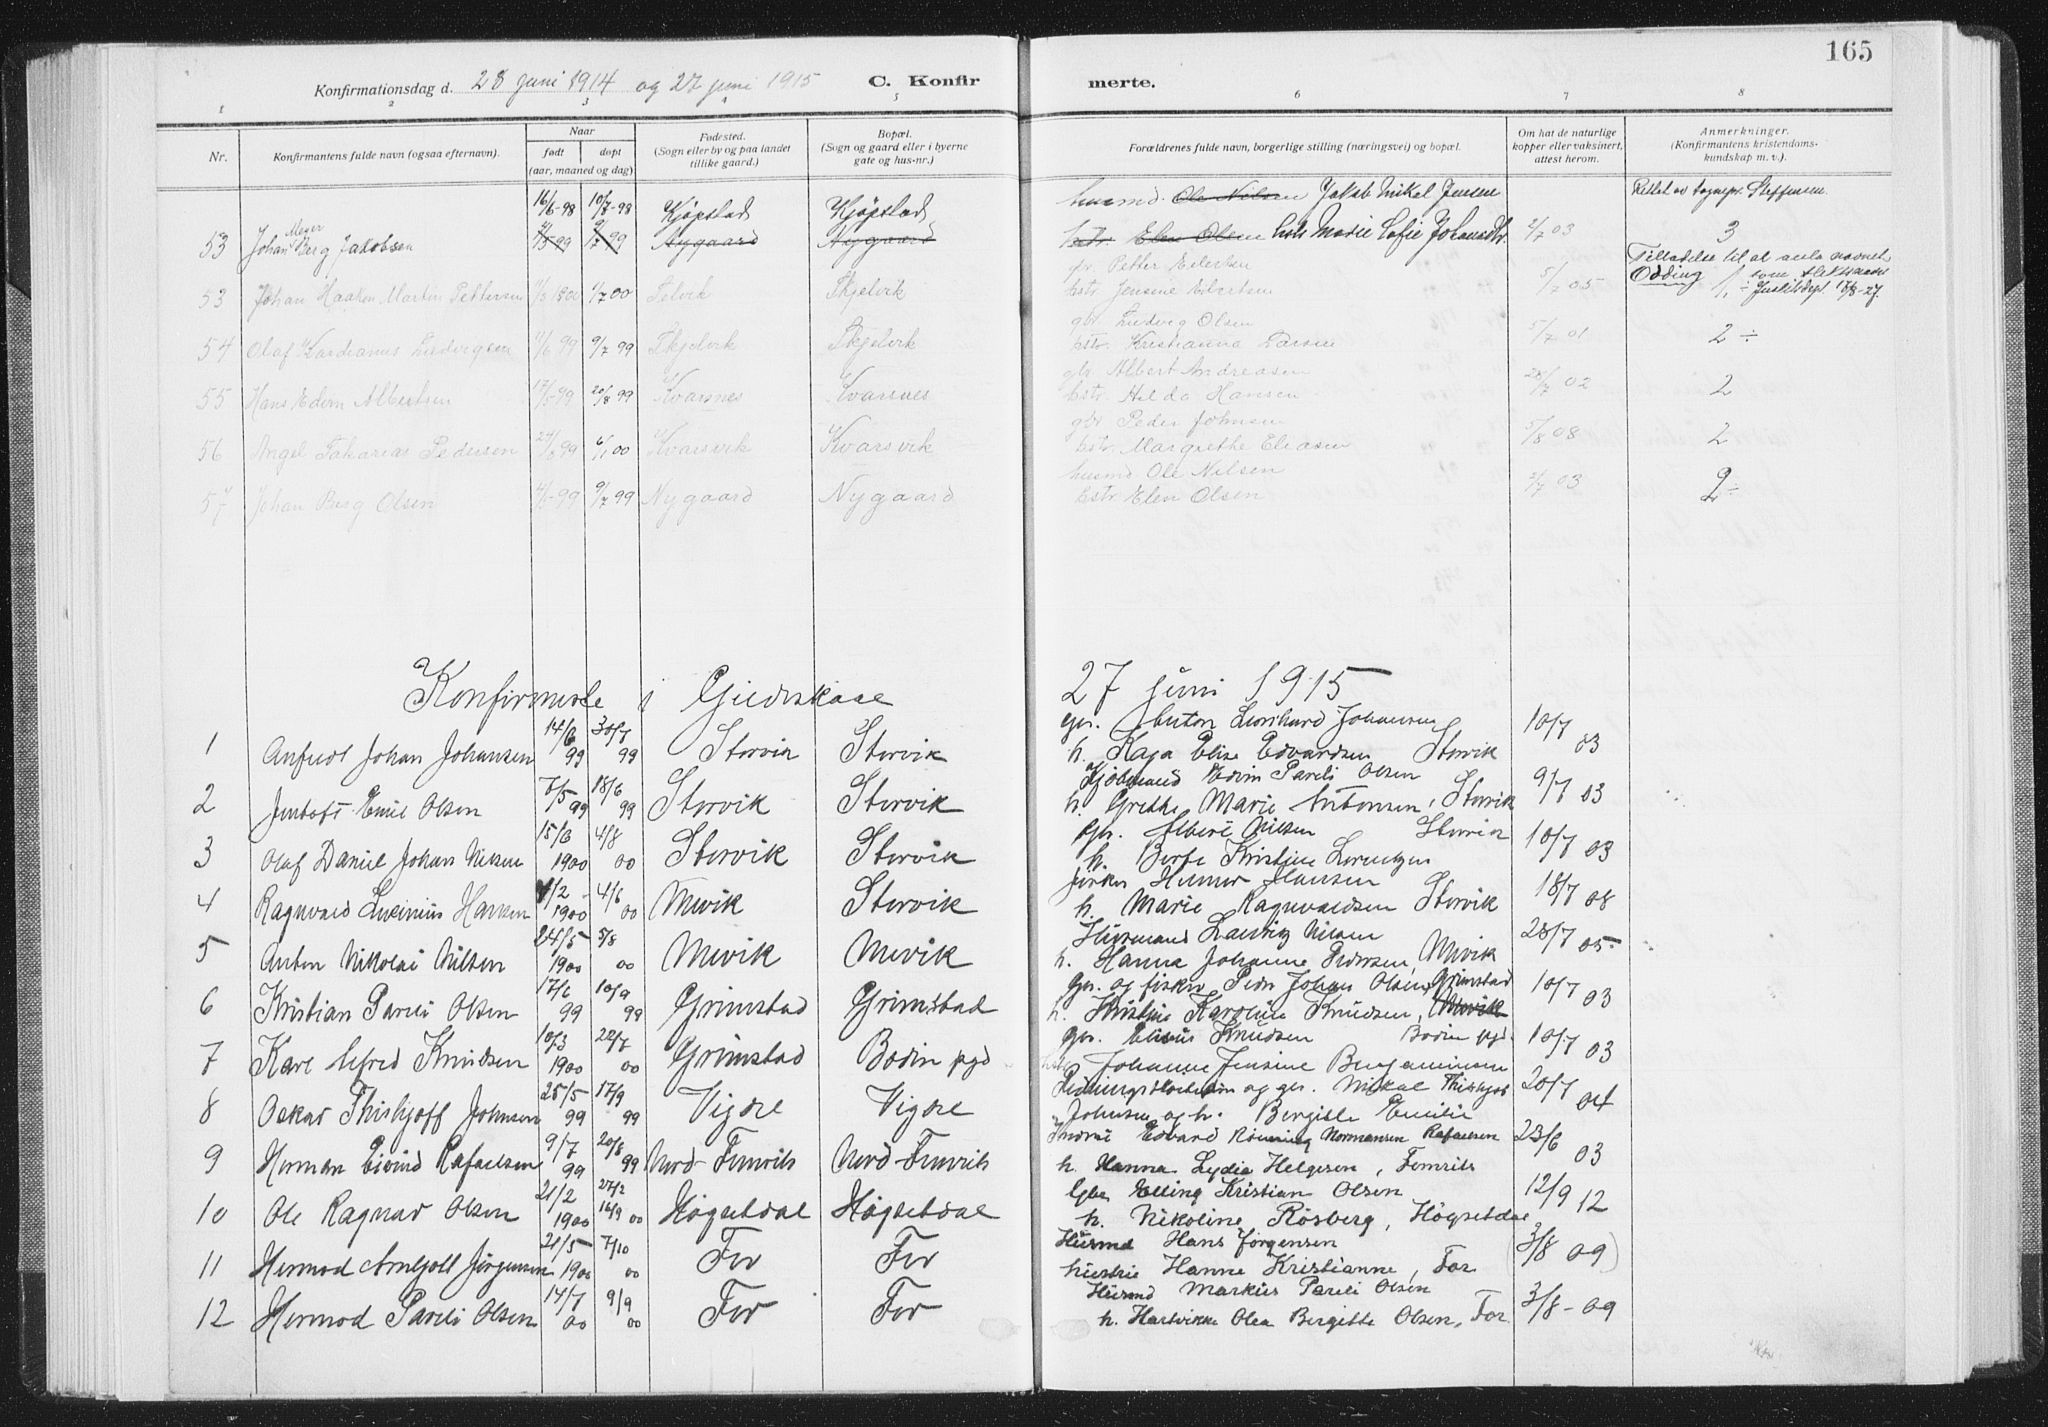 165
Konfirmationsdag d. 28 juni 1914 og 27 juni 1915 C. Konfir merte.
1 2 3 4 5 6 7 8
Nr. Konfirmantens fulde navn (ogsaa efternavn). Naar født døpt (aar, maaned og dag) Fødested. (Sogn eller by og paa landet tillike gaard.) Bopæl. (Sogn og gaard eller i byerne gate og hus-nr.) Forældrenes fulde navn, borgerlige stilling (næringsvei) og bopæl. Om hat de naturlige kopper eller vaksinert, attest herom. Anmerkninger. (Konfirmantens kristendomskundskap m. v.).
16/6-98 10/8-98 Kjøpstad Kjøpstad husmd. Ole Nilsen Jakob Mikal Jensen Rettet av sognepr. Steffensen
53 Johan Meyer Berg Jakobsen 4/5 99 9/7 99 Nygaard Nygaard Elen Olsen Marie Sofie 2/7 03 3
Petter Eilertsen Tilladelse til at anta navnet
53 Johan Haakon Martin Pettersen 1/7 00 Selvik Skjelvik hstr Jensine Eilertsen 5/7 05 Odding som slektsnavn Justitsdept. 17/8-27.
gbr. Ludvig Olsen
54 Olaf Ludvigsen 4/6 99 9/7 99 Skjelvik Skjelvik hstr. Kristianna Larsen 5/7 01 2÷
gbr Albert Andreasen
55 Hans Edvin Albertsen 17/5-99 20/8 99 Kvarsnes Kvarsnes hstr. Hilda Hansen 28/7 02 2
gbr Peder Johnsen
56 Angel Sakarias Pedersen 24/8 99 6/1 00 Kvarsvik Kvarsvik hstr. Margrethe Eliasen 5/8 08 2
husmd Ole Nilsen
57 Johan Berg Olsen 4/5-99 9/7 99 Nygaard Nygaard hstr Elen Olsen 2/7 03 2÷
Konfirmerte i Gildeskaal 27 juni 1915
gbr. Anton Leonhard Johansen
1 Anfredt Johan Johansen 14/6 99 30/7 99 Storvik Storvik h. Kaja Elise Edvardsen Storvik 10/7 03
Edvin Pareli Olsen
2 Jentoft Emil Olsen 7/5 99 18/6 99 Storvik Storvik h. Grethe Marie Antonsen, Storvik 9/7 03
gbr. Albert Nilsen Storvik
3 Olaf Daniel Johan Nilsen 15/6 1900 4/8 00 Storvik Storvik h. Berte Kristine Lorentzen 10/7 03
fisker Hemmer Hansen
4 Ragnvald Lucinius Hansen 1/2 1900 4/6 00 Mevik Storvik h. Marie Ragnvaldsen Storvik 18/7 08
Husmand Ludvig Nilsen
5 Anton Nikolai Nilsen 24/5 1900 5/8 00 Mevik Mevik h. Hanna Johanne Pedersen, Mevik 28/7 05
gbr. og fisker Peder Johan Olsen, Grimstad
6 Kristian Pareli Olsen 17/6 99 10/9 99 Grimstad Grimstad h. Kristine Karoline Knudsen, Mevik 10/7 03
gbr. Elisius Knudsen Bodin pgd.
7 Karl Alfred Knudsen 10/3 1900 22/7 00 Grimstad Bodin pgd Johanne Jensine Benjaminsen 10/7 03
og gbr. Mikal Thishjof
8 Oskar Thishjoff Johnsen 25/5 99 17/9 99 Vigdel Vigdel Johnsen og h. Bergitte Emilie 20/7 04
Edvard Rønning Normansen Rafaelsen
9 Herman Eivind Rafaelsen 9/7 99 20/8 99 Nord-Femris Nord-Femris h. Hanna Lydia Helgesen, Femris 23/6 03
Gbr Elling Kristian Olsen
10 Ole Ragnar Olsen 21/2 1900 27/2 16/9 00 Høgsetdal Høgsetdal h. Nikoline Rösberg, Høgsetdal 12/9 12
Husmd Hans Jørgensen
11 Hermod Arnljott Jørgensen 21/5 1900 7/10 00 For For hustru Hanne Kristianne, For (3/8 09)
Husmd Markus Pareli Olsen
12 Hermod Pareli Olsen 14/7 00 9/9 00 For For h. Hartvikke Olea Bergitte Olsen, For 3/8-09